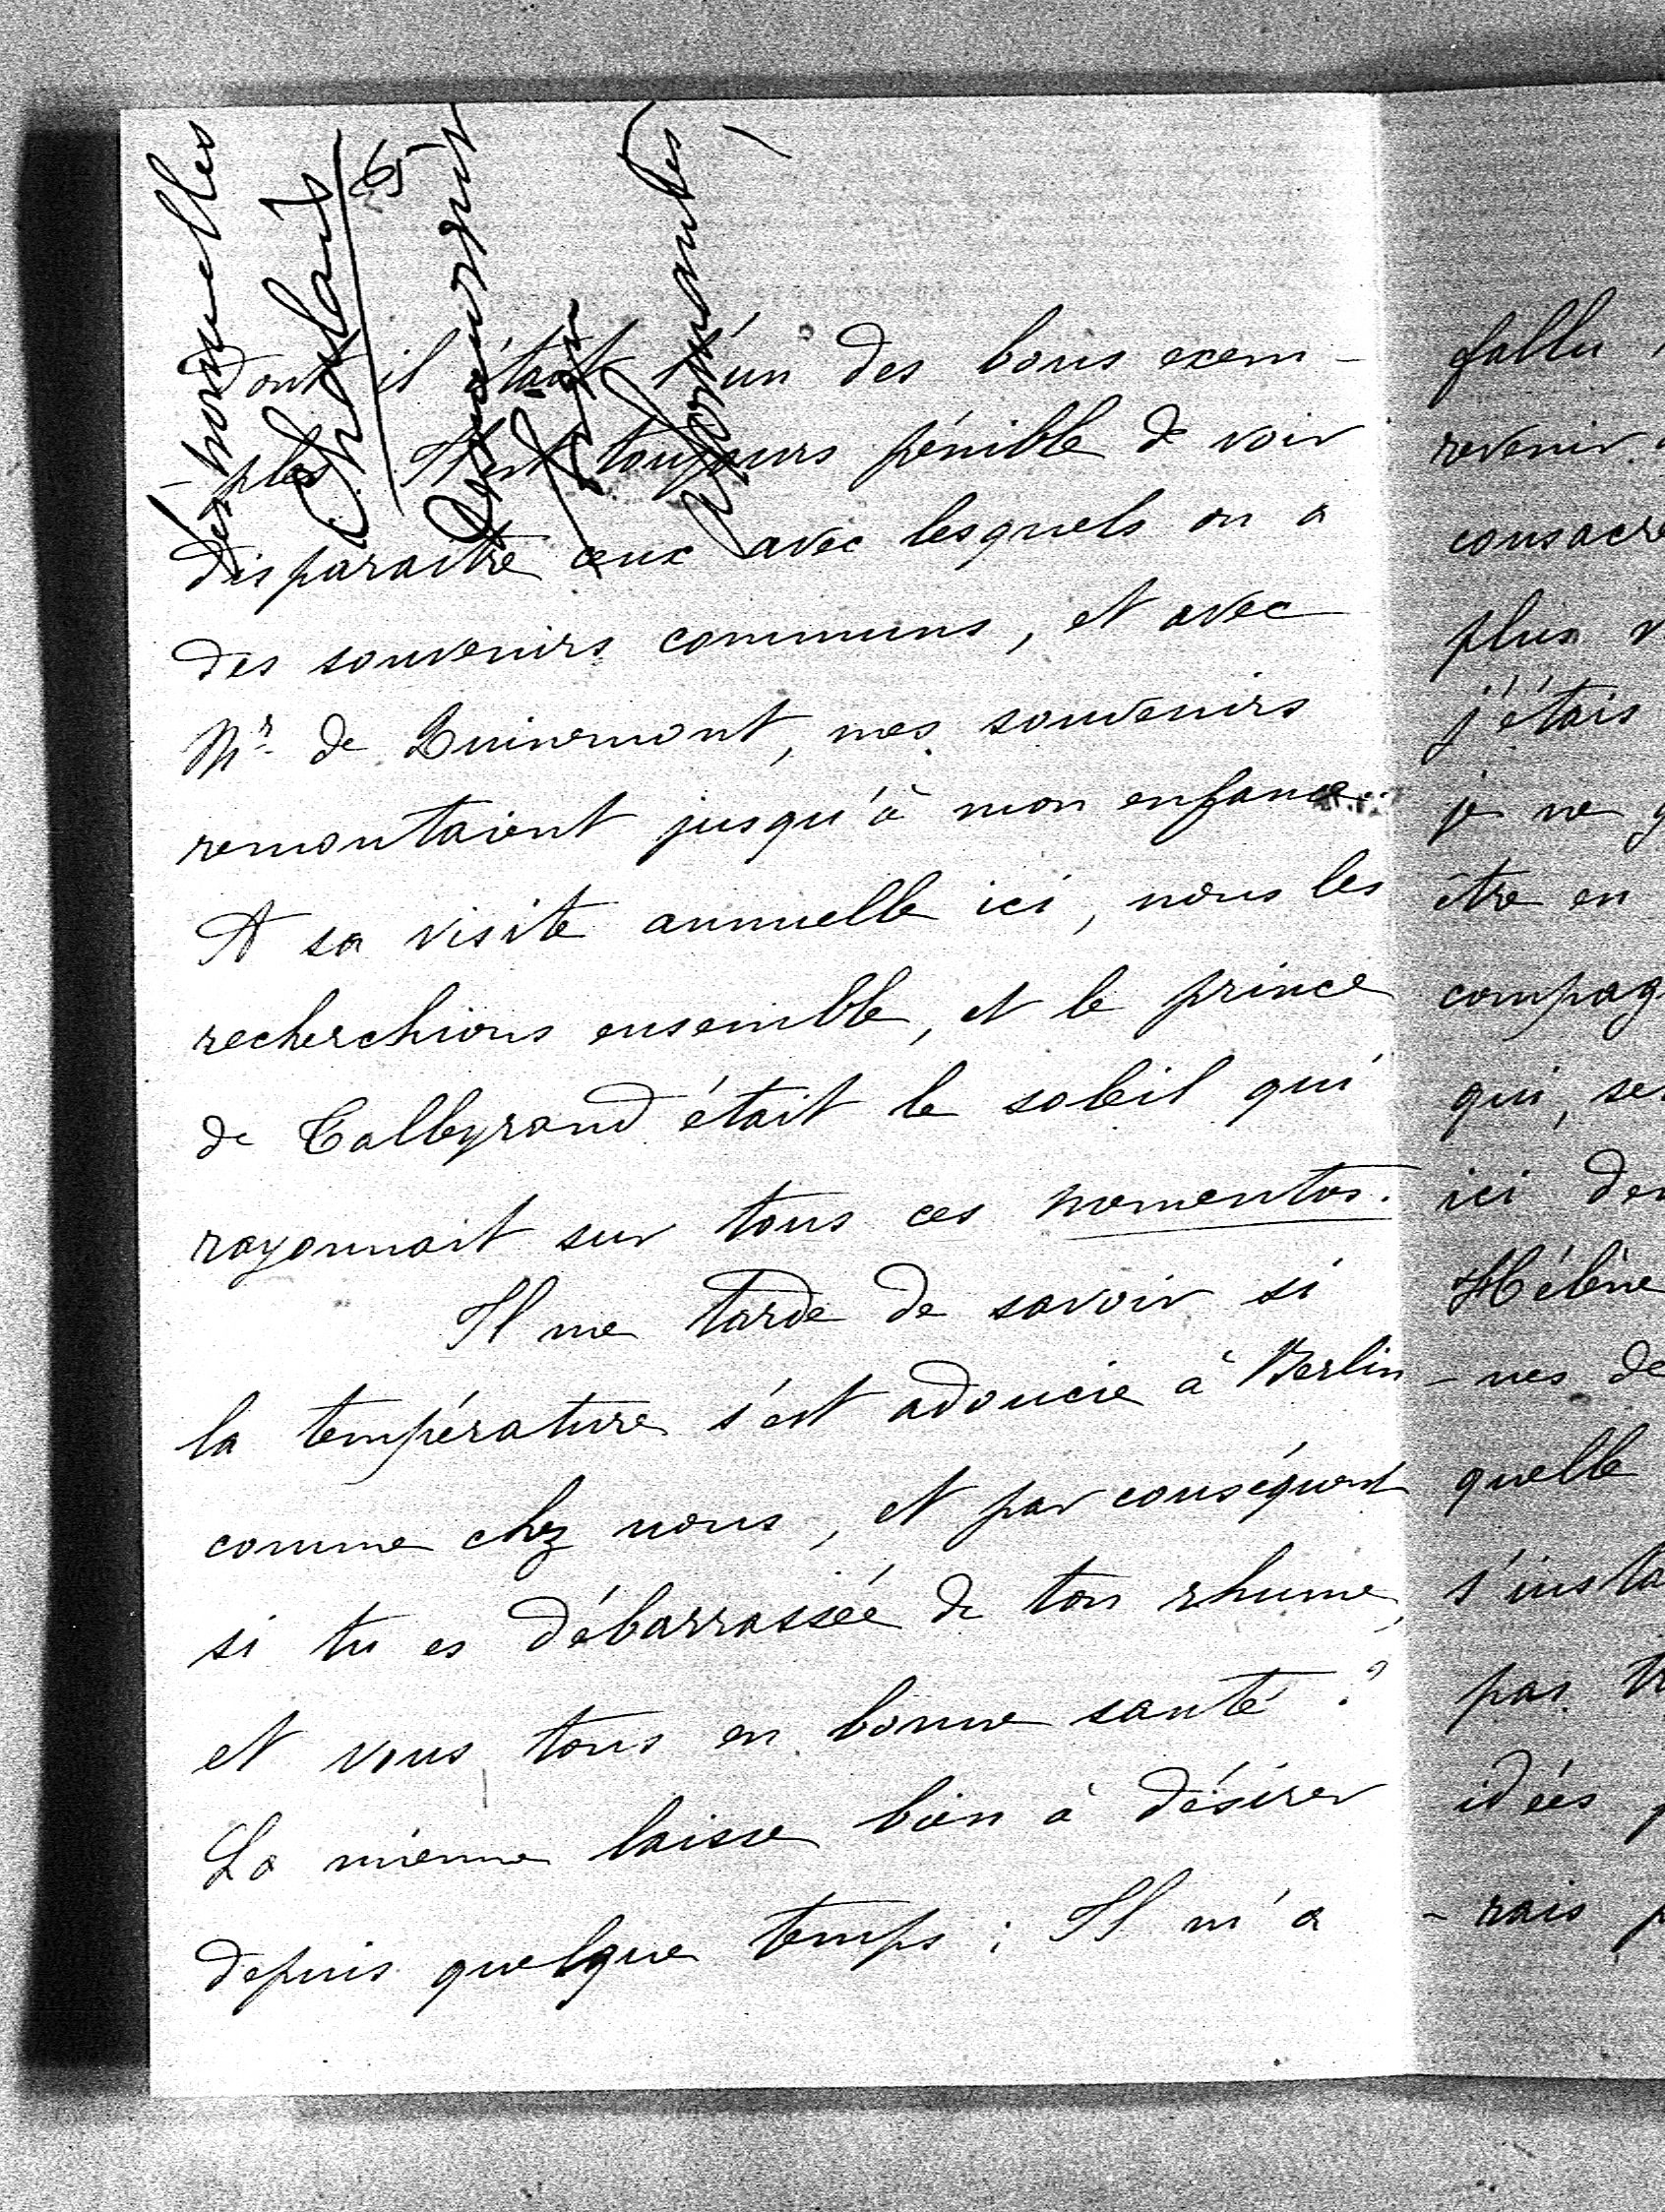 dont il était l'un des bons exem-
-ples. Il est toujours pénible de voir
disparaitre ceux avec lesquels on a
des souvenirs communs, et avec
Mr. de , mes souvenirs
remontaient jusqu'à mon enfance.
A sa visite annuelle ici, nous les
recherchions ensemble, et le prince
de Talleyrand était le soleil qui
rayonnait sur tous ces momentos.
Il me tarde de savoir si
la température s'est adoucie à Berlin
comme chez nous, et par conséquent
si tu es débarrassée de ton rhume,
et vous tous en bonne santé ?
La mienne laisse bien à désirer
depuis quelque temps ; Il m'a
fallu
revenir
consacre
plus
j'étais
je ne
être en
compag
qui, ses
ici
Hélène
-nes de
quelle
s'insta
pas
idées
-rais